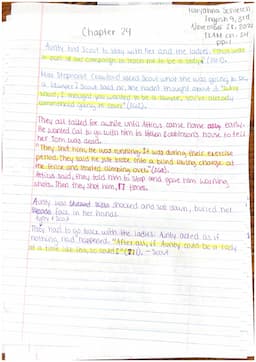 English 9, 3rd
November 28, 2022
TKAM ch. 24
Chapter 24
Aunty had Scout to stay with her and the ladies. "This was
part of her campaign to teach me to be a lady"
Miss Stephanie Crawford asked Scout what she was going to be,
a lawyer? Scout said no, she hadn't thought about it
"shoot, I thought you wanted to be a lawyer, you've already
commenced going to court"
They all talked for awhile until Atticus came home early.
He wanted Cal to go with him to Helen Robinson's house to tell
her Tom was dead.
"They shot him. He was running. It was during their exercise
period. They said he just broke into a blind raving charge at
the fence and started climbing over"
Atticus said, they told him to stop and gave him warning
shots. Then they shot him, 17 times.
Aunty was shocked and sat down, buried her
face in her hands.
They had to go back with the ladies. Aunty acted as if
nothing had happened. "After all, if Aunty could be a lady
at a time like this, so could I" - Scout